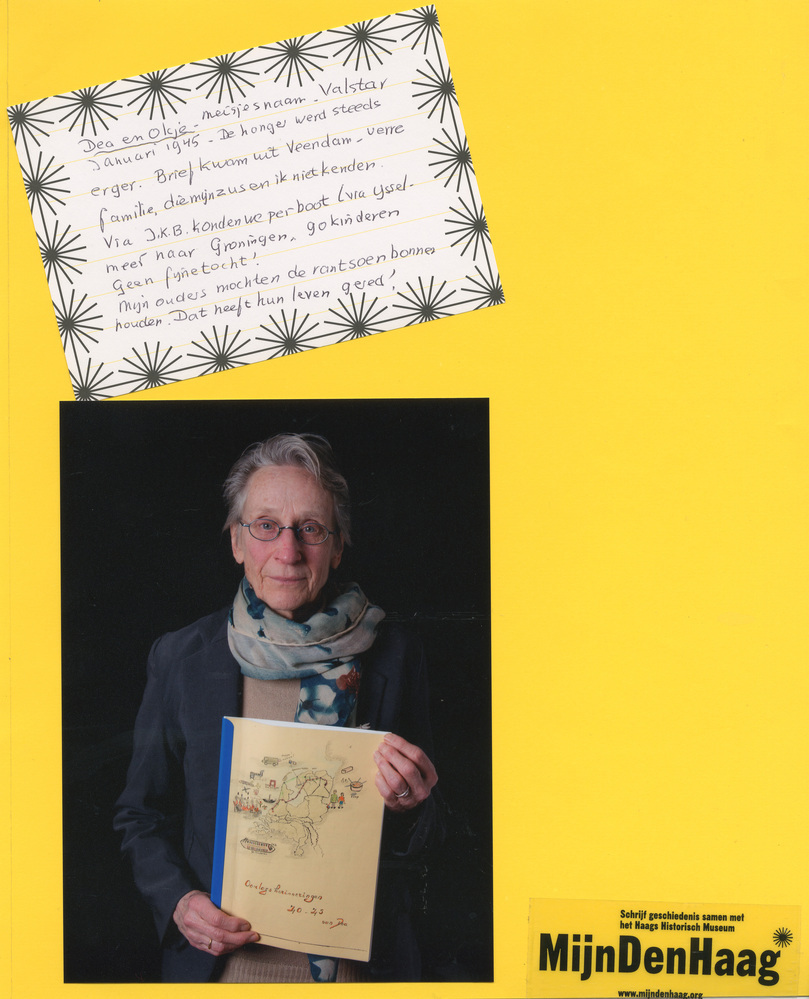 Dea en Okje - meisjesnaam - Valstar
Januari 1945 - De honger werd steeds
erger. Brief kwam uit Veendam - verre
familie, die mijn zus en ik niet kenden.
Via I.K.B. konden we per boot (via IJssel-
meer naar Groningen, 90 kinderen
Geen fijne tocht!
Mijn ouders mochten de rantsoenbonnen
houden. Dat heeft hun leven gered!
Oorlogs herinneringen
40-45
van Dea
Schrijf geschiedenis samen met
het Haags Historisch Museum
MijnDenHaag
www.mijndenhaag.org